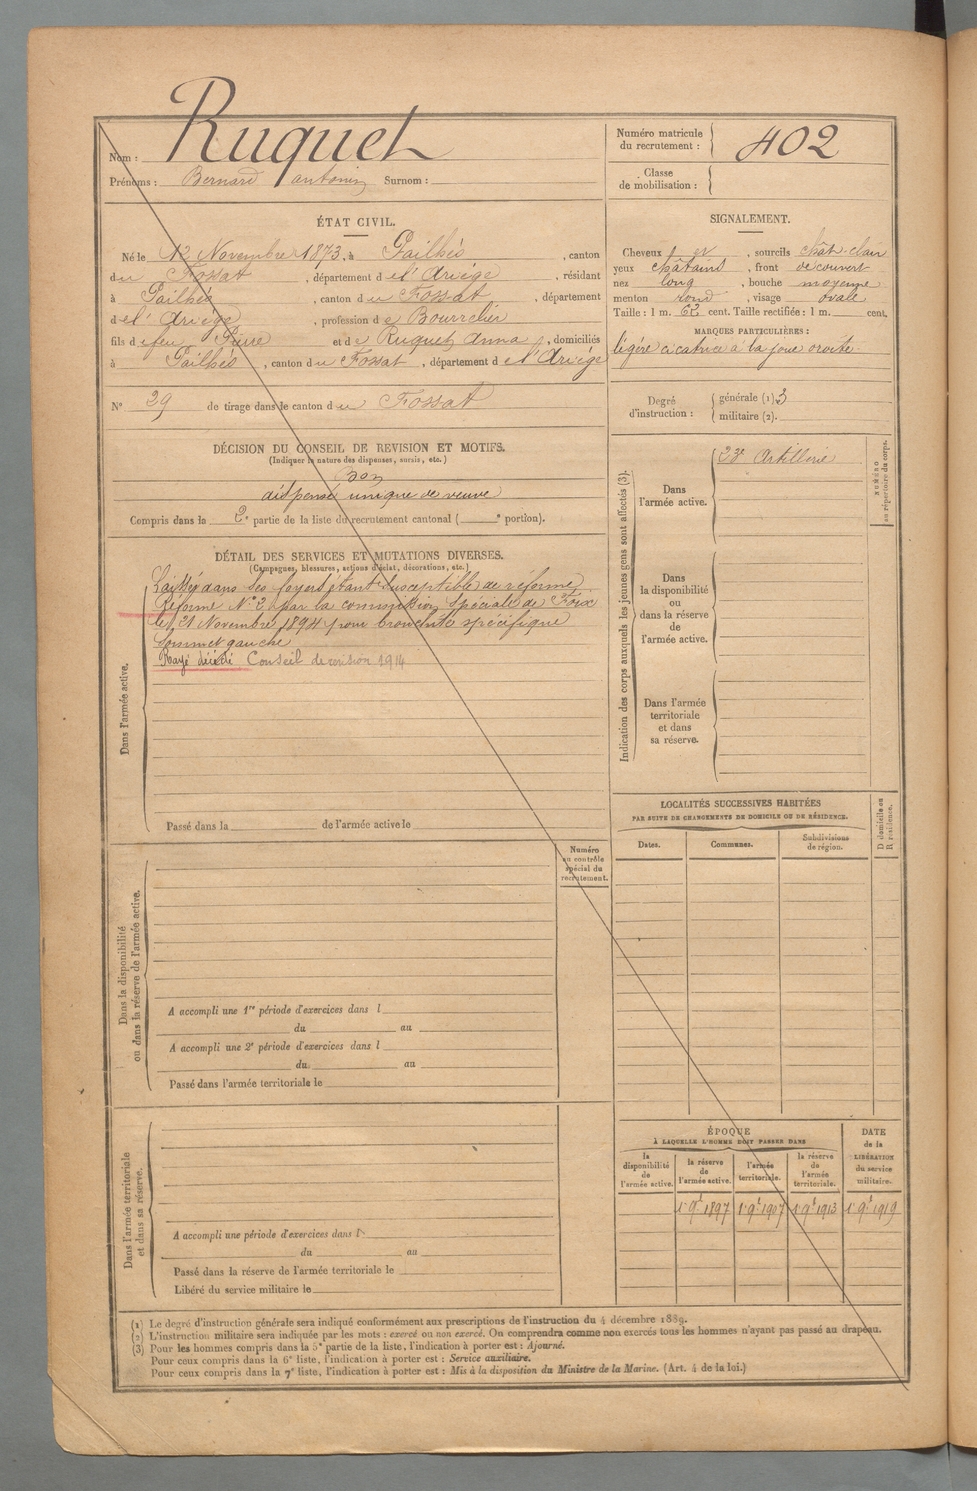 Nom : Ruquet
Prénoms : Bernard antonin Surnom :
Numéro matricule du recrutement : 402
Classe de mobilisation :
ÉTAT CIVIL.
Né le 12 Novembre 1873, à Pailhés, canton
du Fossat, département de l'Ariège, résidant
à Pailhés, canton du Fossat, département
de l'Ariège, profession de Bourrelier
fils de feu Pierre et de Ruquet Anna, domiciliés
à Pailhés, canton du Fossat, département de l'Ariége
N° 29 de tirage dans le canton du Fossat
DÉCISION DU CONSEIL DE REVISION ET MOTIFS.
(Indiquer la nature des dispenses, sursis, etc.)
Bon
dispensé unique de veuve
Compris dans la 2e partie de la liste du recrutement cantonal ( e portion).
DÉTAIL DES SERVICES ET MUTATIONS DIVERSES.
(Campagnes, blessures, actions d'éclat, décorations, etc.)
Dans l'armée active.
Laissé dans ses foyers étant susceptible de réforme
Réformé N° 2 par la commission spéciale de Foix
le 21 Novembre 1894 pour bronchite spécifique
Sommet gauche
Rayé décédé Conseil de revision 1914
Passé dans la de l'armée active le
Numéro au contrôle spécial du recrutement.
Dans la disponibilité ou dans la réserve de l'armée active.
A accompli une 1re période d'exercices dans l
du au
A accompli une 2e période d'exercices dans l
du au
Passé dans l'armée territoriale le
Dans l'armée territoriale et dans sa réserve.
A accompli une période d'exercices dans l
du au
Passé dans la réserve de l'armée territoriale le
Libéré du service militaire le
SIGNALEMENT.
Cheveux, sourcils chât. clair
yeux châtains, front découvert
nez long, bouche moyenne
menton rond, visage ovale
Taille : 1 m. 62 cent. Taille rectifiée : 1 m. cent.
MARQUES PARTICULIÈRES :
légère cicatrice à la joue droite
Degré d'instruction : générale (1). 3
militaire (2).
Indication des corps auxquels les jeunes gens sont affectés (3).
NUMÉRO au répertoire du corps.
Dans l'armée active.
23e Artillerie
Dans la disponibilité ou dans la réserve de l'armée active.
Dans l'armée territoriale et dans sa réserve.
LOCALITÉS SUCCESSIVES HABITÉES
PAR SUITE DE CHANGEMENTS DE DOMICILE OU DE RÉSIDENCE.
Dates. Communes. Subdivisions de région. D domicile ou R résidence.
ÉPOQUE
À LAQUELLE L'HOMME DOIT PASSER DANS
la disponibilité de l'armée active. la réserve de l'armée active. l'armée territoriale. la réserve de l'armée territoriale. DATE de la LIBÉRATION du service militaire.
1er 9bre 1897 1er 9bre 1907 1er 9bre 1913 1er 9bre 1919
(1) Le degré d'instruction générale sera indiqué conformément aux prescriptions de l'instruction du 4 décembre 1889.
(2) L'instruction militaire sera indiquée par les mots : exercé ou non exercé. On comprendra comme non exercés tous les hommes n'ayant pas passé au drapeau.
(3) Pour les hommes compris dans la 5e partie de la liste, l'indication à porter est : Ajourné.
Pour ceux compris dans la 6e liste, l'indication à porter est : Service auxiliaire.
Pour ceux compris dans la 7e liste, l'indication à porter est : Mis à la disposition du Ministre de la Marine. (Art. 4 de la loi.)